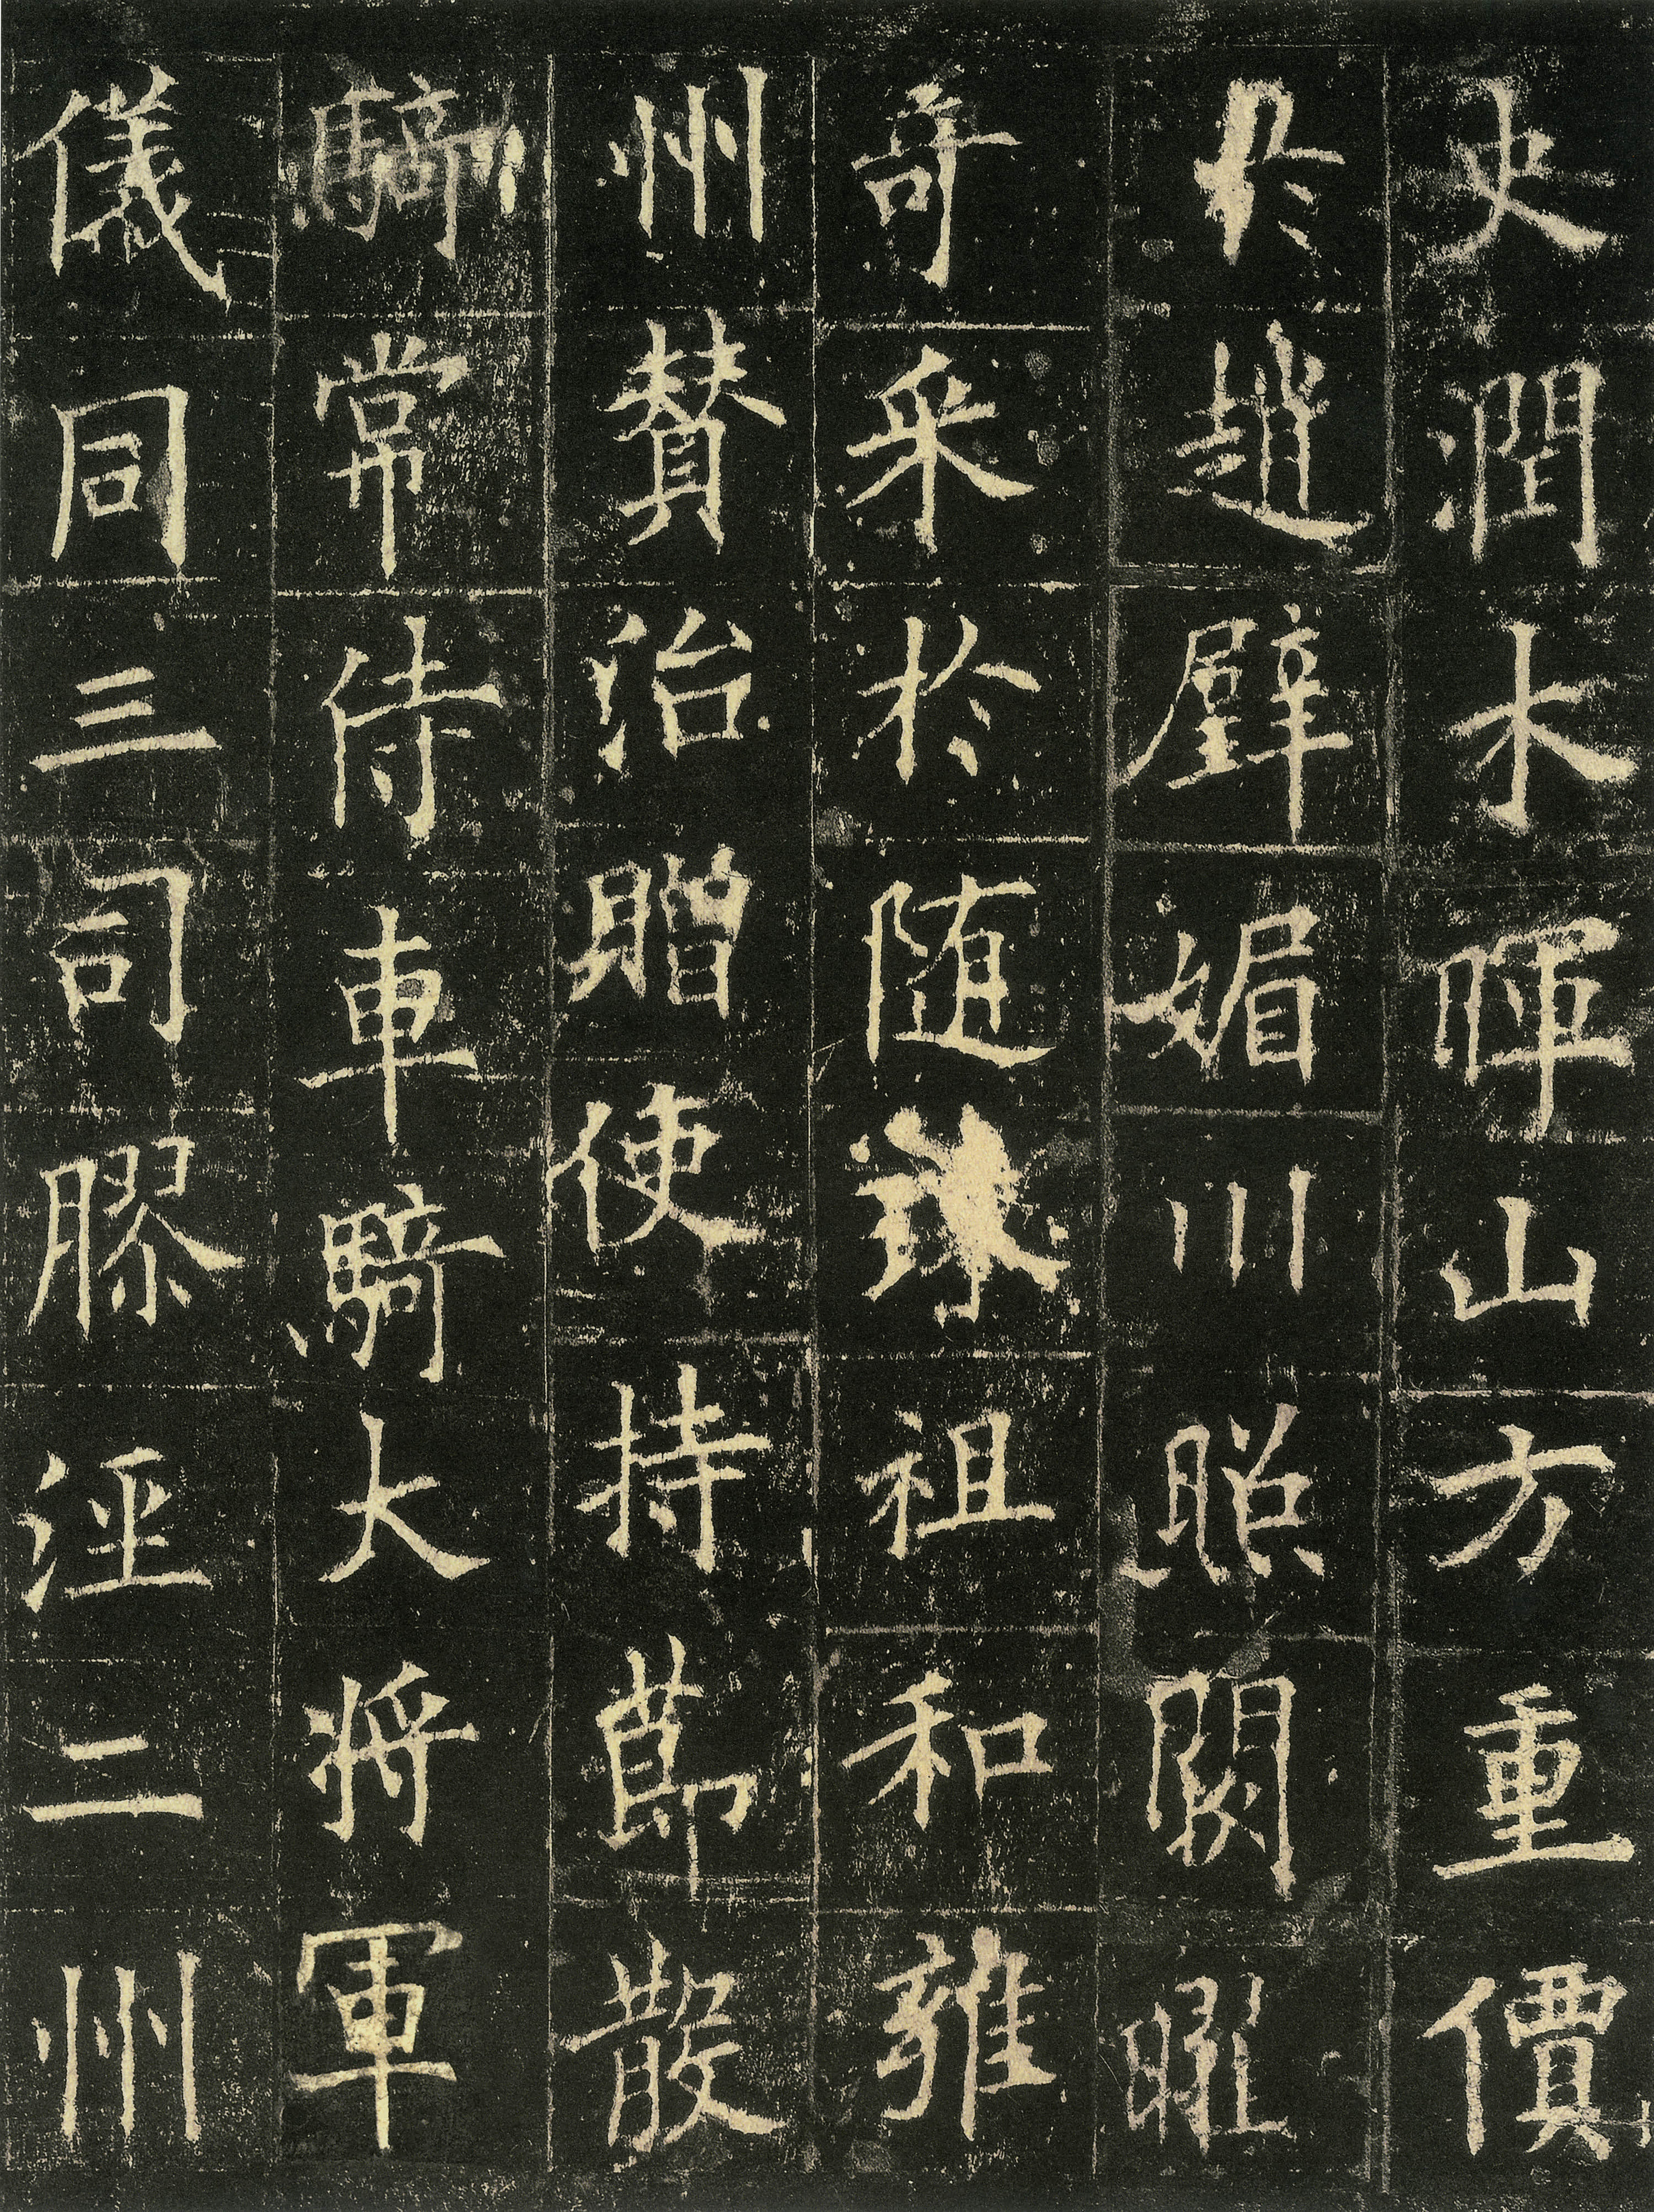 史潤木暉山方重價
於趙璧媚川照闕曜
奇采於随珠祖和雍
州賛治贈使持莭散
騎常侍車騎大将軍
儀同三司膠涇二州